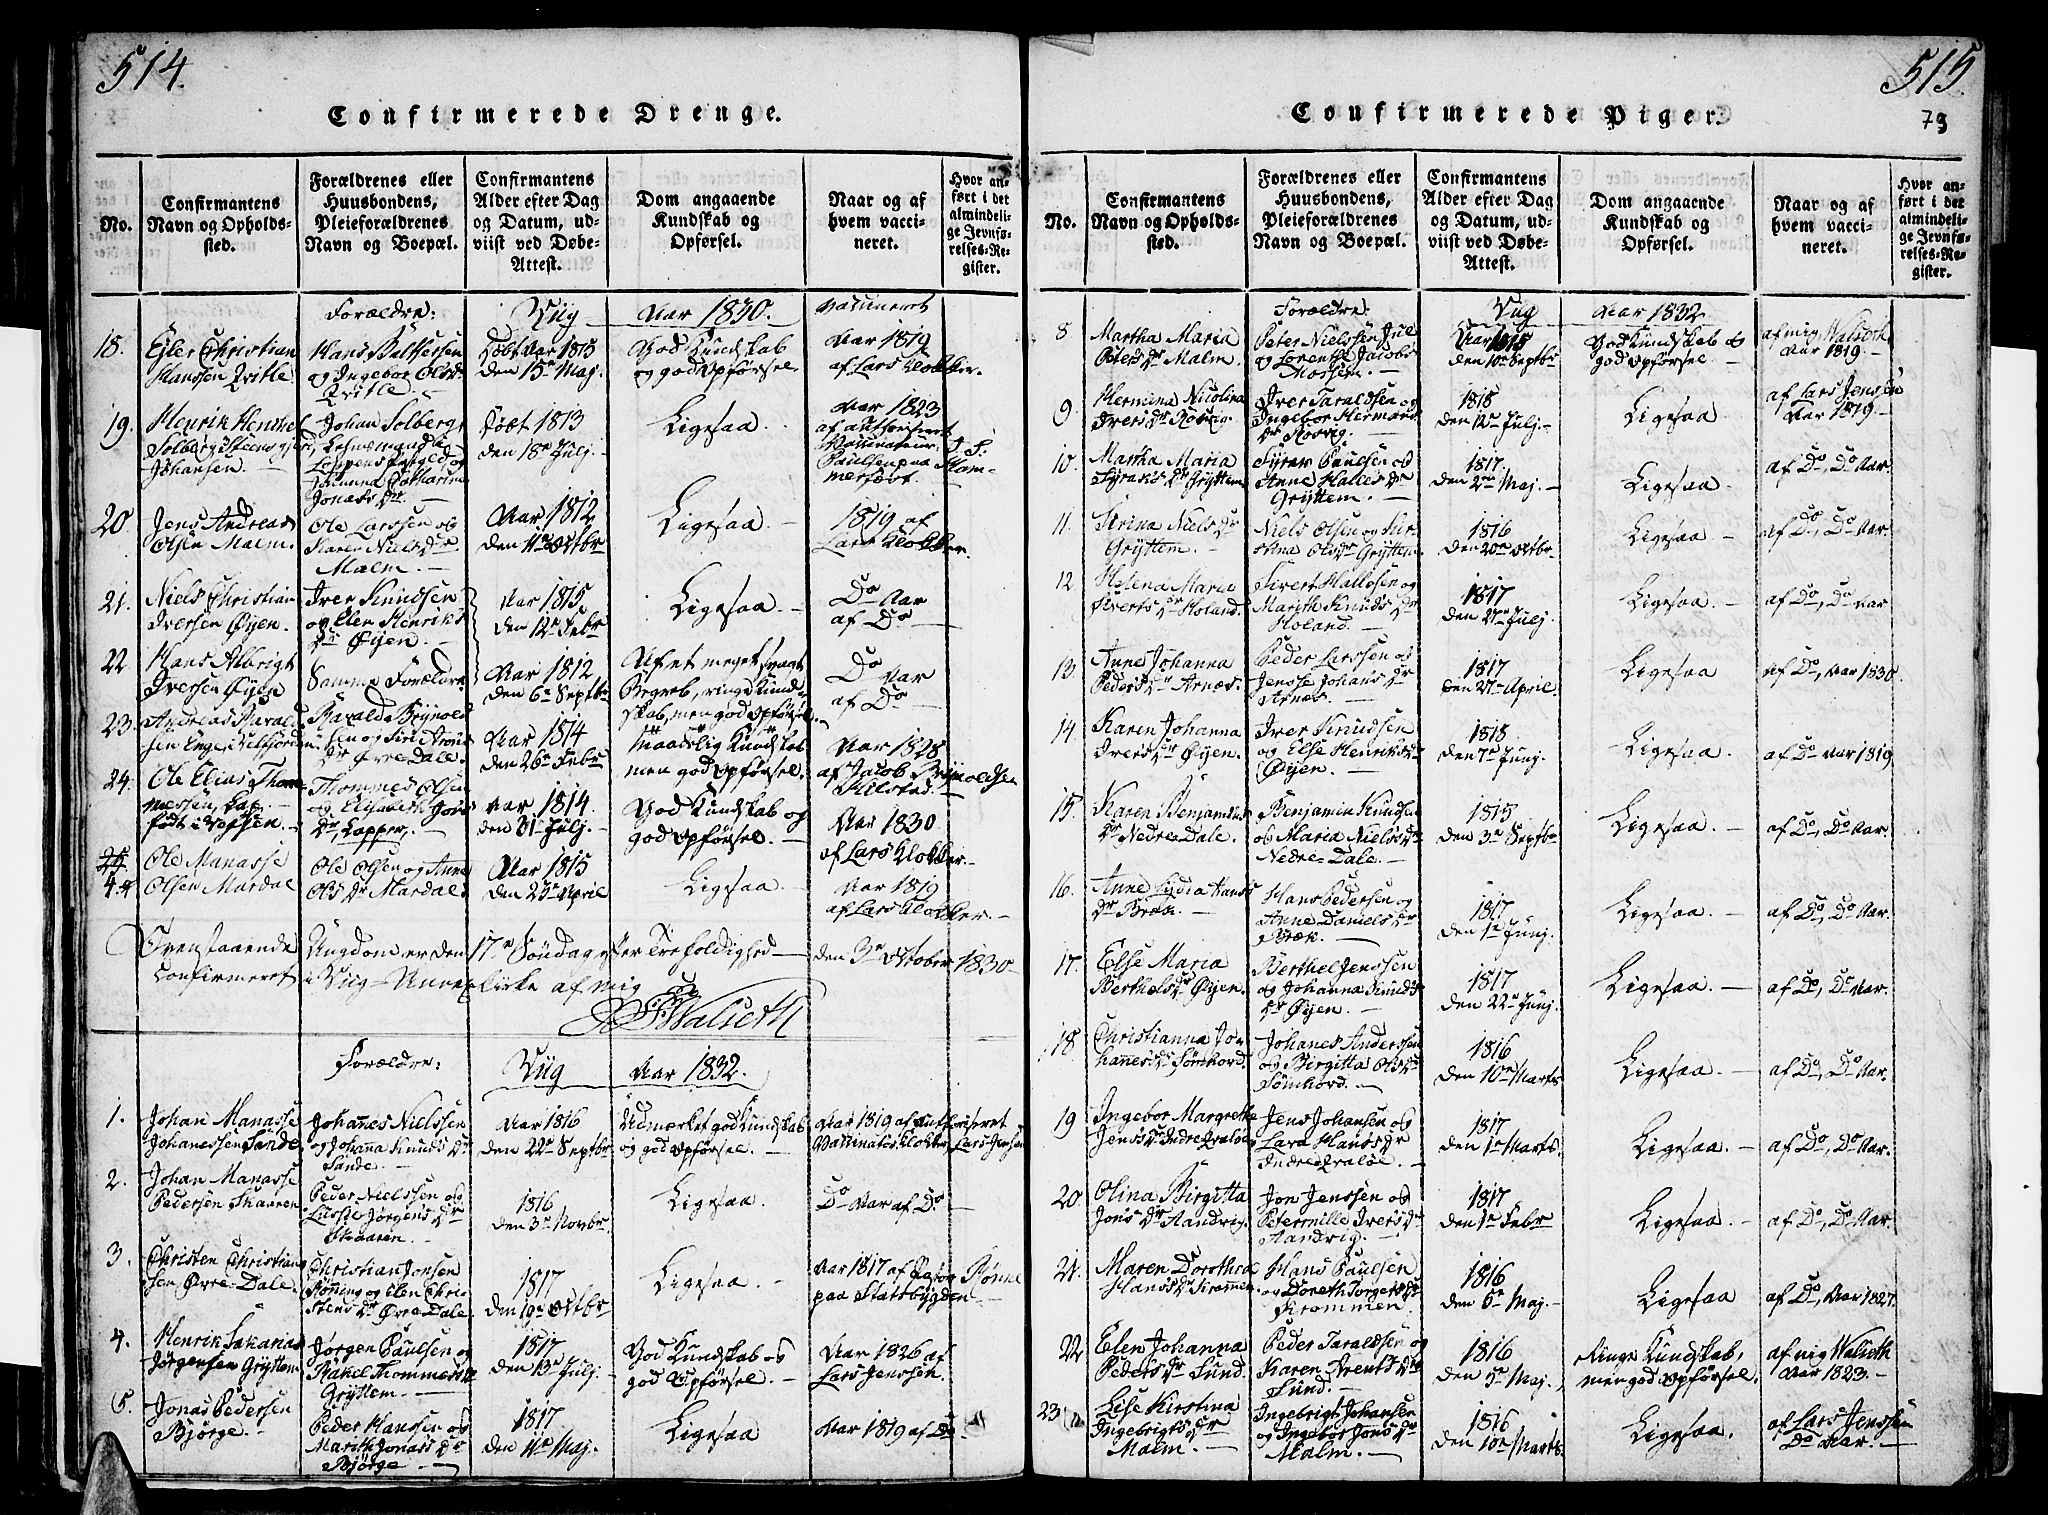 514.
Confirmerede Drenge.
No.
Confirmantens
Navn og Opholds-
sted.
Forældrenes eller
Huusbondens,
Pleieforældrenes
Navn og Boepæl.
Confirmantens
Alder efter Dag
og Datum, ud-
viist ved Døbe-
Attest.
Dom angaaende
Kundskab og
Opførsel.
Naar og af
hvem vacci-
neret.
Hvor an-
ført i det
almindeli-
ge Jevnfø-
relses-Re-
gister.
Forældre: Viig Aar 1830. Vaccineret
18. Ejler Christian
Hanssen Qvitle
Hans Balthersen
og Ingebor Olsdr
Qvitle
Døbt Aar 1815
den 15de Maj.
God Kundskab
og god Opførsel.
Aar 1819
af Lars Klokker.
19. Henrik
Solberg
Johansen
Johan Solberg
Johanna Catharina
Jonas dr
Født 1813
den 18de Julj.
Ligesaa
Aar 1823
af authoriseret
Vaccinateur
Paulsen paa
20. Jens Andreas
Olsen Malm.
Ole Larssen og
Karen Niels dr
Malm.
Aar 1812
den 11te Octbr
Ligesaa.
1819 af
Lars Klokker.
21. Niels Christian
Iversen Øyen.
Iver Knudsen
og Elen Henriks
dr Øyen.
Aar 1815
den 12te Febr
Ligesaa
Do Aar
af Do
22 Hans Albrigt
Iversen Øyen
Samme Forældre
Aar 1812
den 6te Septbr
Af et meget svagt
Begreb, ringe Kund-
skab, men god Opførsel.
Do
Aar
af Do
23. Andreas
Aar 1814
den 26de Febr
Maadelig Kundskab
men god Opførsel.
Aar 1828
af Jacob Brynoldsen
24. Ole Elias Thom-
messen, Lap.
født i Vefsen.
Thommes Olsen
og Elisabeth
dr, Lapper.
Aar 1814.
den 31te Julj.
God Kundskab og
god Opførsel.
Aar 1830
af Lars Klokker
25. Ole Manasse
Olsen Mardal
Ole Olsen og Anne
Ols dr Mardal.
Aar 1815
den 23de April
Ligesaa.
Aar 1819
af Lars Klokker.
Ovenstaaende Ungdom er den 17de Søndag efter Trefoldighed den 3de October 1830
Confirmeret i Viig Annexkirke af mig
Walseth
Forældre: Viig Aar 1832.
1. Johan Manasse
Johanessen Sande.
Johannes Nielsen
og Johanna Knuds dr
Sande.
Aar 1816
den 22de Septbr
Udmærket god Kundskab
og god Opførsel.
Aar 1819 af authoriseret
Vaccinateur Klokker Lars Jensen
2. Johan Manasse
Pedersen Skaaren
Peder Nielssen og
Lussie Jørgens dr
Skaaren.
1816
den 3de Novbr
Ligesaa.
Do Aar af Do
3. Christen Christian-
sen Øvre-Dale.
Christian Jonsen
Rønning og Elen Chri-
stens dr Øvre Dale.
1817
den 19de Octbr
Ligesaa.
Aar 1817 af
paa Stadsbygden
4. Henrik Sakarias
Jørgensen Gryttem
Jørgen Paulsen og
Rakel Thommes dr
Gryttem.
1817
den 13de Julj.
God Kundskab og
god Opførsel.
Aar 1826 af
Lars Jenssen.
5. Jonas Pedersen
Bjørge.
Peder Hanssen og
Marith Jonas dr
Bjørge
1817
den 11te Maj.
Ligesaa
Aar 1819 af Do
515.
79
Confirmerede Piger.
No.
Confirmantens
Navn og Opholds-
sted.
Forældrenes eller
Huusbondens,
Pleieforældrenes
Navn og Boepæl.
Confirmantens
Alder efter Dag
og Datum, ud-
viist ved Døbe-
Attest.
Dom angaaende
Kundskab og
Opførsel.
Naar og af
hvem vacci-
neret.
Hvor an-
ført i det
almindeli-
ge Jevnfø-
relses-Re-
gister.
Forældre: Viig Aar 1832
8 Martha Maria
Peters dr Malm.
Peter Nielssen Juul
og Lorentha Jacobs
Mossem.
Aar 1815
den 10de Septbr
God Kundskab og
god Opførsel
af mig Walseth
Aar 1819.
9 Hermina Nicolina
Ivers dr
Iver Taraldsen og
Ingebor Hermans
dr
1818
den 12te Julj.
Ligesaa
af Lars Jensen
Aar 1819
10. Martha Maria
Syraks dr Gryttem
Syrak Paulsen og
Anne Halles dr
Gryttem.
1817
den 2den Maj.
Ligesaa
af Do, Do Aar.
11. Sirina Niels dr
Gryttem.
Niels Olsen og
Ols dr Gryttem.
1816
den 20de Octbr
Ligesaa
af Do, Do Aar.
12 Helena Maria
Siverts dr Holand.
Sivert Hallesen og
Marith Knuds dr
Holand.
1817
den 27de Julj.
Ligesaa.
af Do, Do Aar
13. Anne Johanna
Peders dr Arnæs.
Peder Larssen og
Jensse Johans dr
Arnæs.
1817
den 27de April.
Ligesaa
af Do, Aar 1830.
14. Karen Johanna
Ivers dr Øyen.
Iver Knudssen
og Else Henriks dr
Øyen.
1818
den 7de Junj.
Ligesaa
af Do Aar 1819.
15. Karen Benjamins
dr Nedre Dale.
Benjamin Knudsen
og Maria Niels dr
Nedre-Dale.
1815
den 3de Septbr
Ligesaa.
af Do, Do Aar.
16. Anne Lydia Hans
dr Bræk.
Hans Pedersen og
Anne Daniels dr
Bræk.
1817
den 1te Junj.
Ligesaa.
af Do, Do Aar.
17. Else Maria
Berthels dr Øyen.
Berthel Jenssen
og Johanna Knuds
dr Øyen.
1817
den 22de Junj.
Ligesaa.
af Do, Do Aar.
18 Christianna Jo-
hannes dr Sømhord.
Johanes Anderssen
og Birgitta Ols dr
Sømhord.
1816
den 10de Marts
Ligesaa
af Do, Do Aar.
19 Ingebor Margrethe
Jens dr Indre Qvaløe
Jens Johansen og
Lara Hans dr
Indre Qvaløe.
1817
den 1te Marts.
Ligesaa
af Do, Do Aar.
20. Olina Birgitta
Jons dr Aandvig.
Jon Jenssen og
Petternille Ivers dr
Aandvig.
1817
den 1te Febr
Ligesaa.
af Do, Do Aar.
21. Maren Dorothea
Hans dr Krommen.
Hans Paulsen
og Doreth Torgers dr
Krommen.
1816
den 5te Maj.
Ligesaa
af Do, Aar 1827.
22 Elen Johanna
Peders dr Sund.
Peder Taraldsen og
Karen Arents dr
Sund.
1816
den 5te Maj.
Ringe Kundskab,
men god Opførsel.
af mig Walseth
Aar 1823.
23 Lise Kirstina
Ingebrigts dr
Malm.
Ingebrigt Johansen
og Ingebor Jons dr
Malm.
1816
den 10de Marts.
Ligesaa.
af Lars Jenssen
Do Aar.